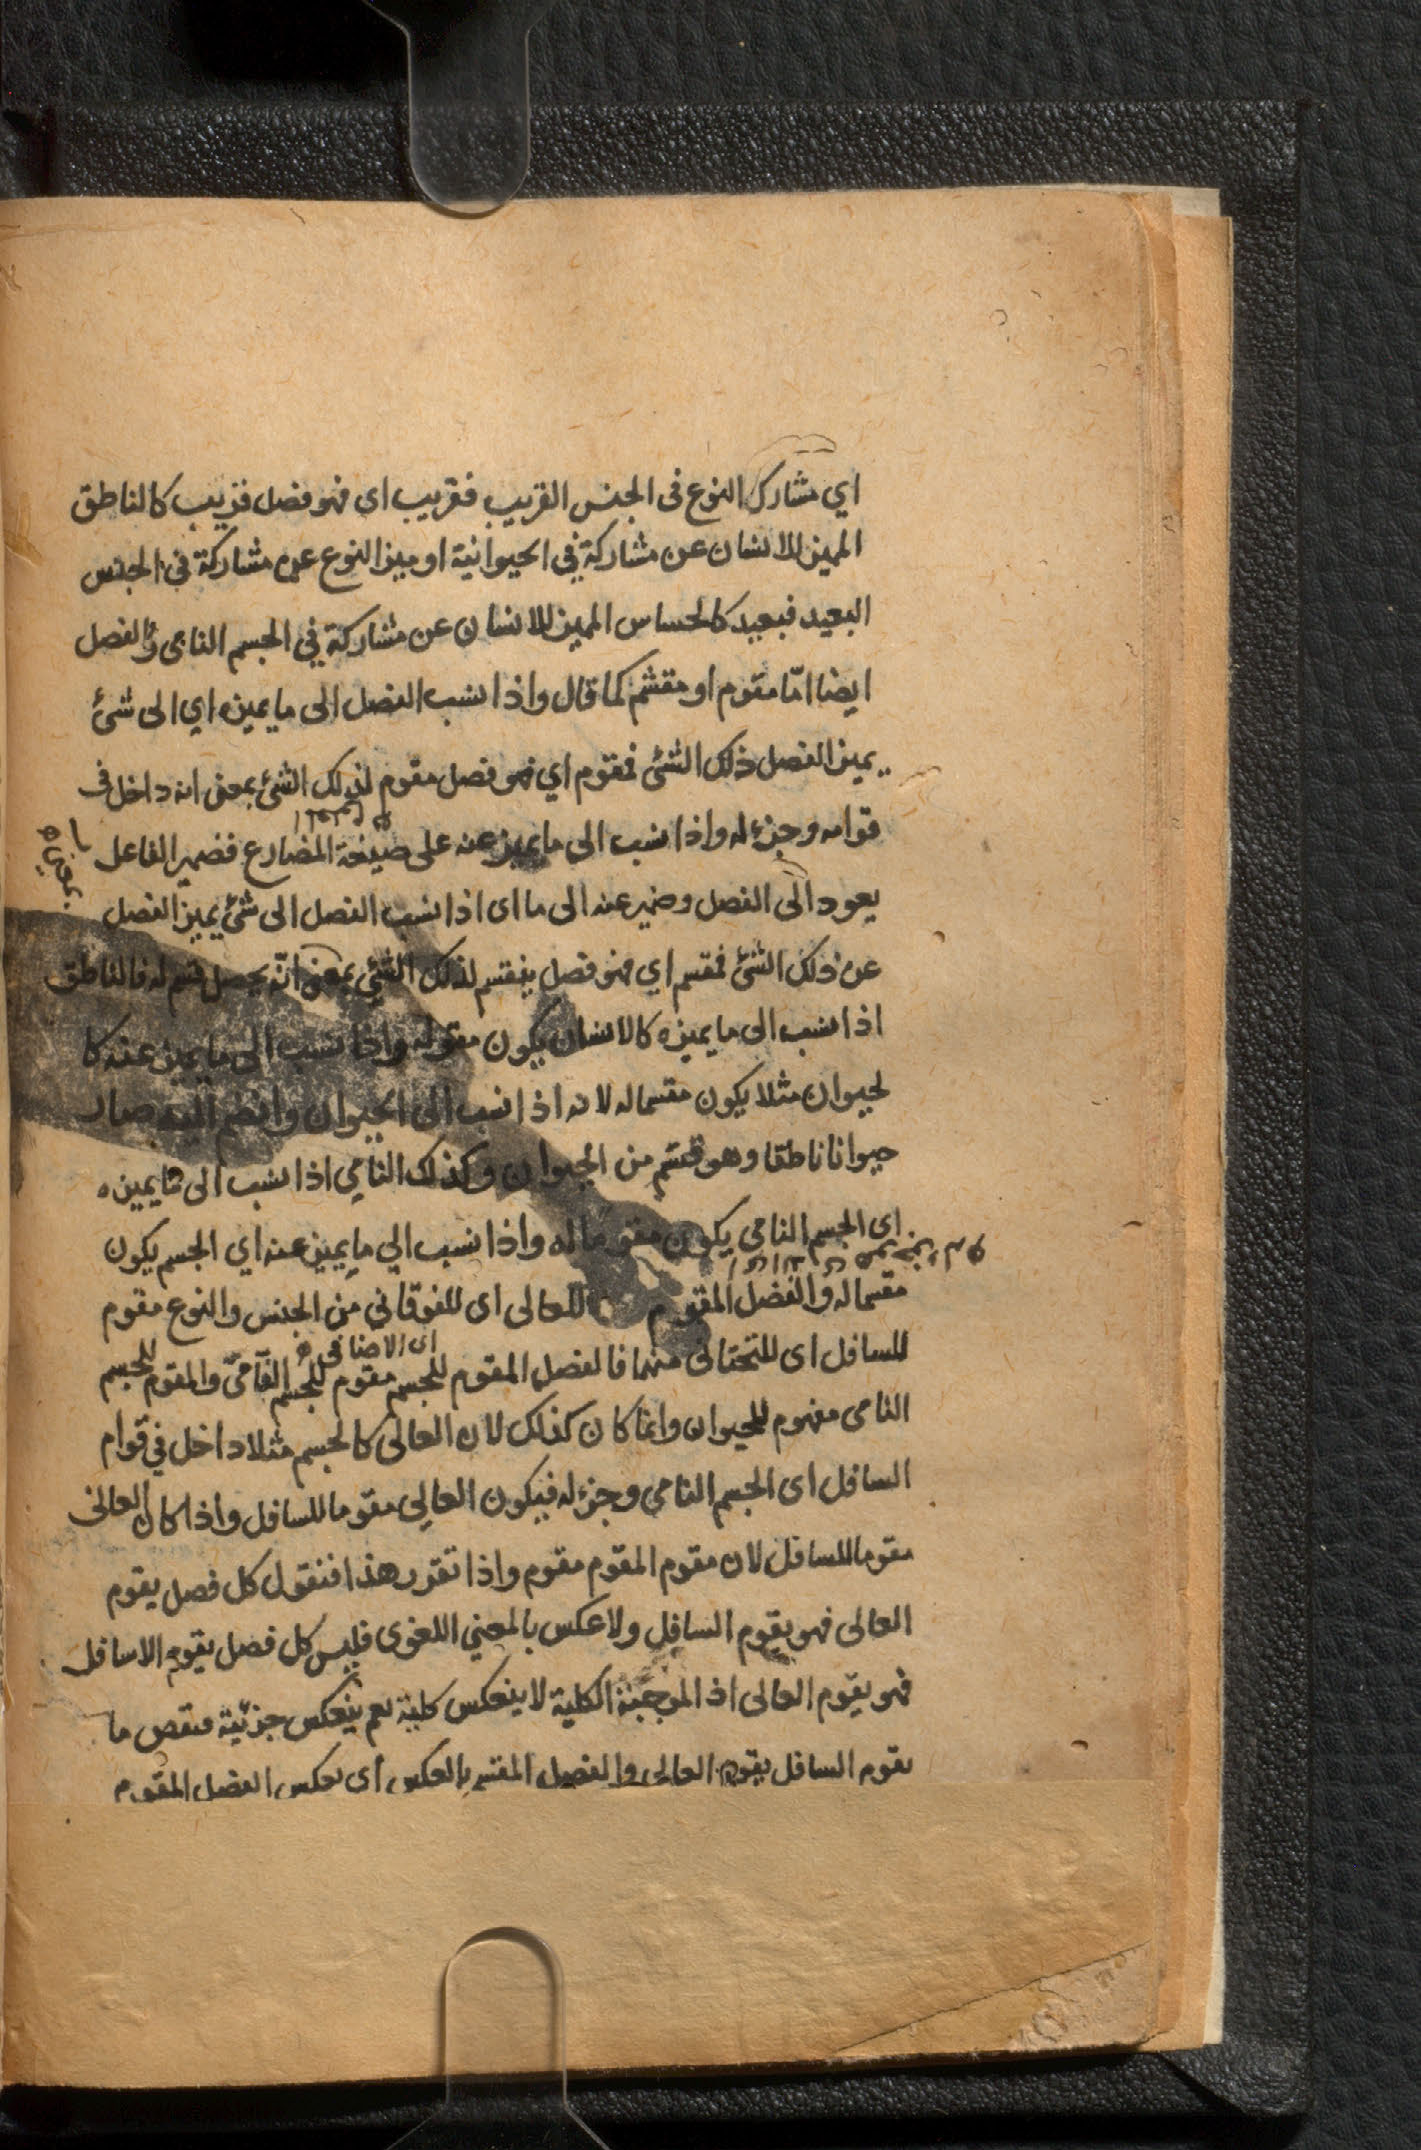 اي مشارك النوع فى الجنس القريب فقريب اى فهو فصل قريب كالناطق
المميز للانسان عن مشاركة في الحيوانية او ميز النوع عن مشاركة في الجنس
البعيد فبعيد كالحساس المميز للانسان عن مشاركة في الجسم النامى والفصل
ايضا امّا مقوم او مقسّم كما قال واذا نسب الفصل الى ما يميزه اي الى شئ
يميز الفصل ذلك الشئ فمقوم اي فهو فصل مقوم لذلك الشئ بمعنى انه داخل فى
قوامه وجزء له واذا نسب الى ما يميز عنه على صيغة المضارع فضمير الفاعل
يعود الى الفصل وضمير عنه الى ما اى اذا نسب الفصل الى شئ يميز الفصل
عن ذلك الشئ فمقسم اي فهو فصل ينقسم لذلك الشئ بمعنى انّه يحصل قسم له فالناطق
اذا نسب الى ما يميزه كالانسان يكون مقوله واذا نسب الى ما يميز عنه كا
لحيوان مثلا يكون مقسما له لانه اذا نسب الى الحيوان وانضم اليه صار
حيوانا ناطقا وهو قسم من الحيوان وكذلك النامي اذا نسب الى ما يميزه
اى الجسم النامى يكون مقوما له واذا نسب الي ما يميز عنه اي الجسم يكون
مقسما له والفصل المقوم للعالى اى للفوقاني من الجنس والنوع مقوم
اى الاضافى
للسافل اى للتحتانى منهما فالفصل المقوم للجسم مقوم للجسم النامىّ والمقوم للجسم
النامى مفهوم للحيوان وانما كان كذلك لان العالى كالجسم مثلا داخل في قوام
السافل اى الجسم النامي وجزء له فيكون العالي مقوما للسافل واذا كان العالى
مقوما للسافل لان مقوم المقوم مقوم واذا تقرر هذا فنقول كل فصل يقوم
العالى فهو يقوم السافل ولا عكس بالمعني اللغوى فليس كل فصل يقوم الاسافل
فهو يقوم العالى اذ الموجبة الكلية لا ينعكس كلية نعم ينعكس جزئية فنقص ما
يقوم السافل يقوم العالى والفصل المقسم بالعكس اى بعكس الفصل المقوم